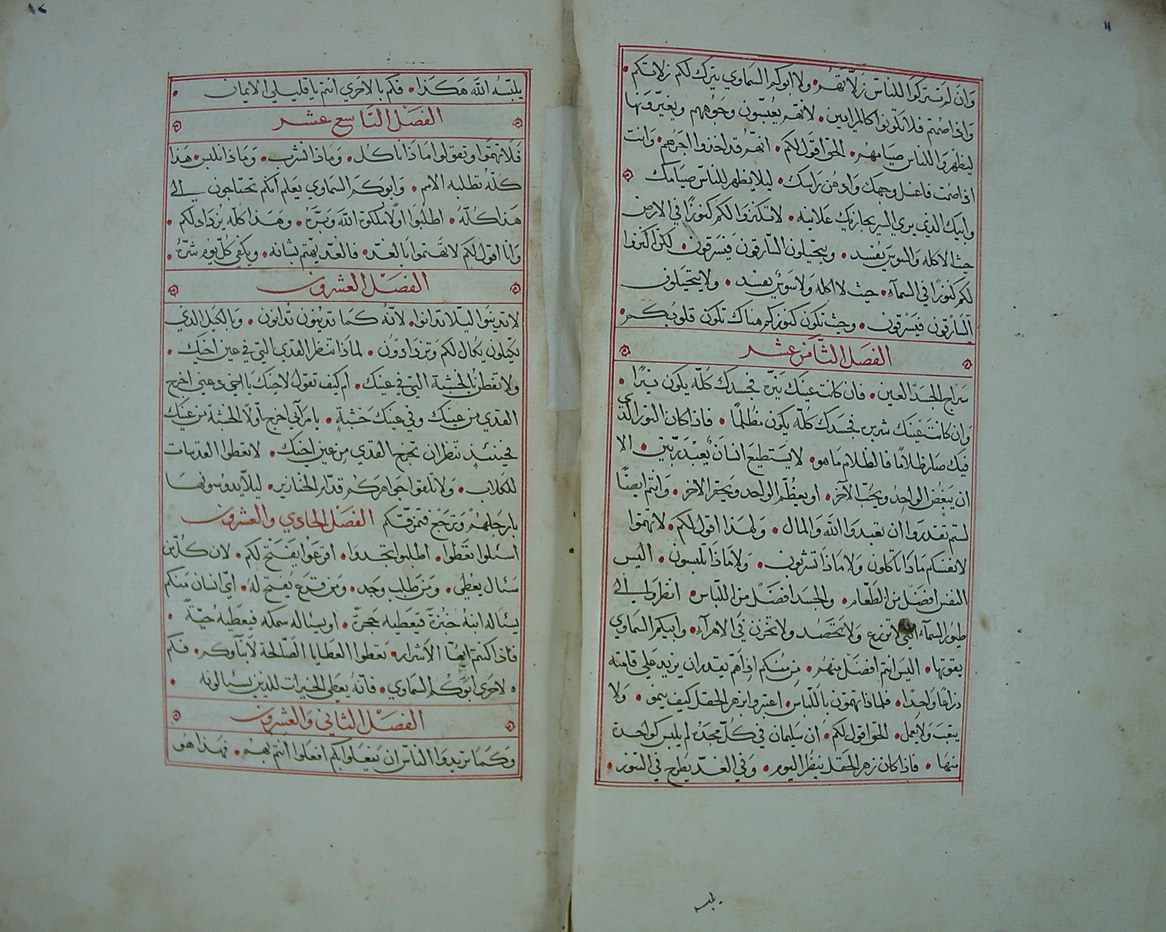 وان لم تتركوا للناس زلاتهم ولا ابوكم السماوي يترك لكم زلاتكم
واذا صمتم فلا تكونوا كالمرايين لانهم يعبسون وجوههم ويغيرونها
ليظهروا للناس صيامهم الحق اقول لكم انهم قد اخذوا اجرهم وانت
اذا صمت فاغسل وجهك وادهن راسك ليلا يظهر للناس صيامك
وابيك الذي يرى السر يجازيك علانية لا تكنزوا لكم كنوزا في الارض
حيث الاكله والسوس يفسد ويتحيلون السارقون فيسرقون لكن اكنزوا
لكم كنوزا في السماء حيث لا اكله ولا سوس يفسد ولا يتحيلون
السارقون فيسرقون وحيث تكون كنوزكم هناك تكون قلوبكم
الفصل الثامن عشر
سراج الجسد العين فان كانت عينك نيره فجسدك كله يكون نيرا
وان كانت عينك شريره فجسدك كله يكون مظلما فاذا كان النور الذي
فيك صار ظلاما فالظلام ما هو لا يستطيع انسان يعبد ربين الا
ان يبغض الواحد ويحب الآخر او يعظم الواحد ويحقر الاخر وانتم ايضا
لستم تقدروا ان تعبدوا الله والمال ولهذا اقول لكم لا تهتموا
لانفسكم ماذا تاكلون ولا ماذا تشربون ولا ماذا تلبسون اليس
النفس افضل من الطعام والجسد افضل من اللباس انظروا الى
طيور السماء التي لا تزرع ولا تحصد ولا تخزن في الاهراء وابيكم السماوي
يقوتها اليس انتم افضل منهم من منكم اذا هم يقدر ان يزيد على قامته
ذراعا واحدا فلماذا تهتمون باللباس اعتبروا بزهر الحقل كيف ينمو ولا
يتعب ولا يعمل الحق اقول لكم ان سليمان في كل مجده لم يلبس كواحدة
منها فاذا كان زهر الحقل ينظر اليوم وفي الغد يطرح في التنور
يلبسه
يلبسه الله هكذا فكم بالاحرى انتم يا قليلي الايمان
الفصل التاسع عشر
فلا تهتموا وتقولوا ماذا ناكل وماذا نشرب وماذا نلبس هذا
كله تطلبه الامم وابوكم السماوي يعلم انكم تحتاجون الى
هذا كله اطلبوا اولا ملكوة الله وبره وهذا كله يزداد لكم
وانا اقول لكم لا تهتموا بالغد فالغد يهتم بشانه ويكفي كل يوم شره
الفصل العشرون
لا تدينوا ليلا تدانوا لانه كما تدينون تدانون وبالكيل الذي
تكيلون يكال لكم وتزدادون لماذا تنظر القذى التي في عين اخيك
ولا تفطن بالخشبة التي في عينك ام كيف تقول لاخيك يا اخي دعني اخرج
القذى من عينك وفي عينك خشبة يا مرآئي اخرج اولا الخشبة من عينك
فحينئذ تنظر ان تخرج القذى من عين اخيك لا تعطوا القدسات
للكلاب ولا تلقوا جواهركم قدام الخنازير ليلا يدوسونها
بارجلهم وترجع فتمزقكم الفصل الحادي والعشرون
اسئلوا تعطوا اطلبوا تجدوا اقرعوا يفتح لكم لان كل من
سئال يعطى ومن طلب وجد ومن قرع يفتح له اي انسان منكم
يسئاله ابنه خبزة فيعطيه حجرة او يساله سمكه فيعطيه حية
فاذا كنتم ايها الأشرار تعطوا العطايا الصالحة لابناوكم فكم
لاحرى ابوكم السماوي فانه يعطي الخيرات للذين يسالونه
الفصل الثاني والعشرون
وكما تريدوا الناس ان يفعلوا بكم افعلوا انتم بهم فهذا هو